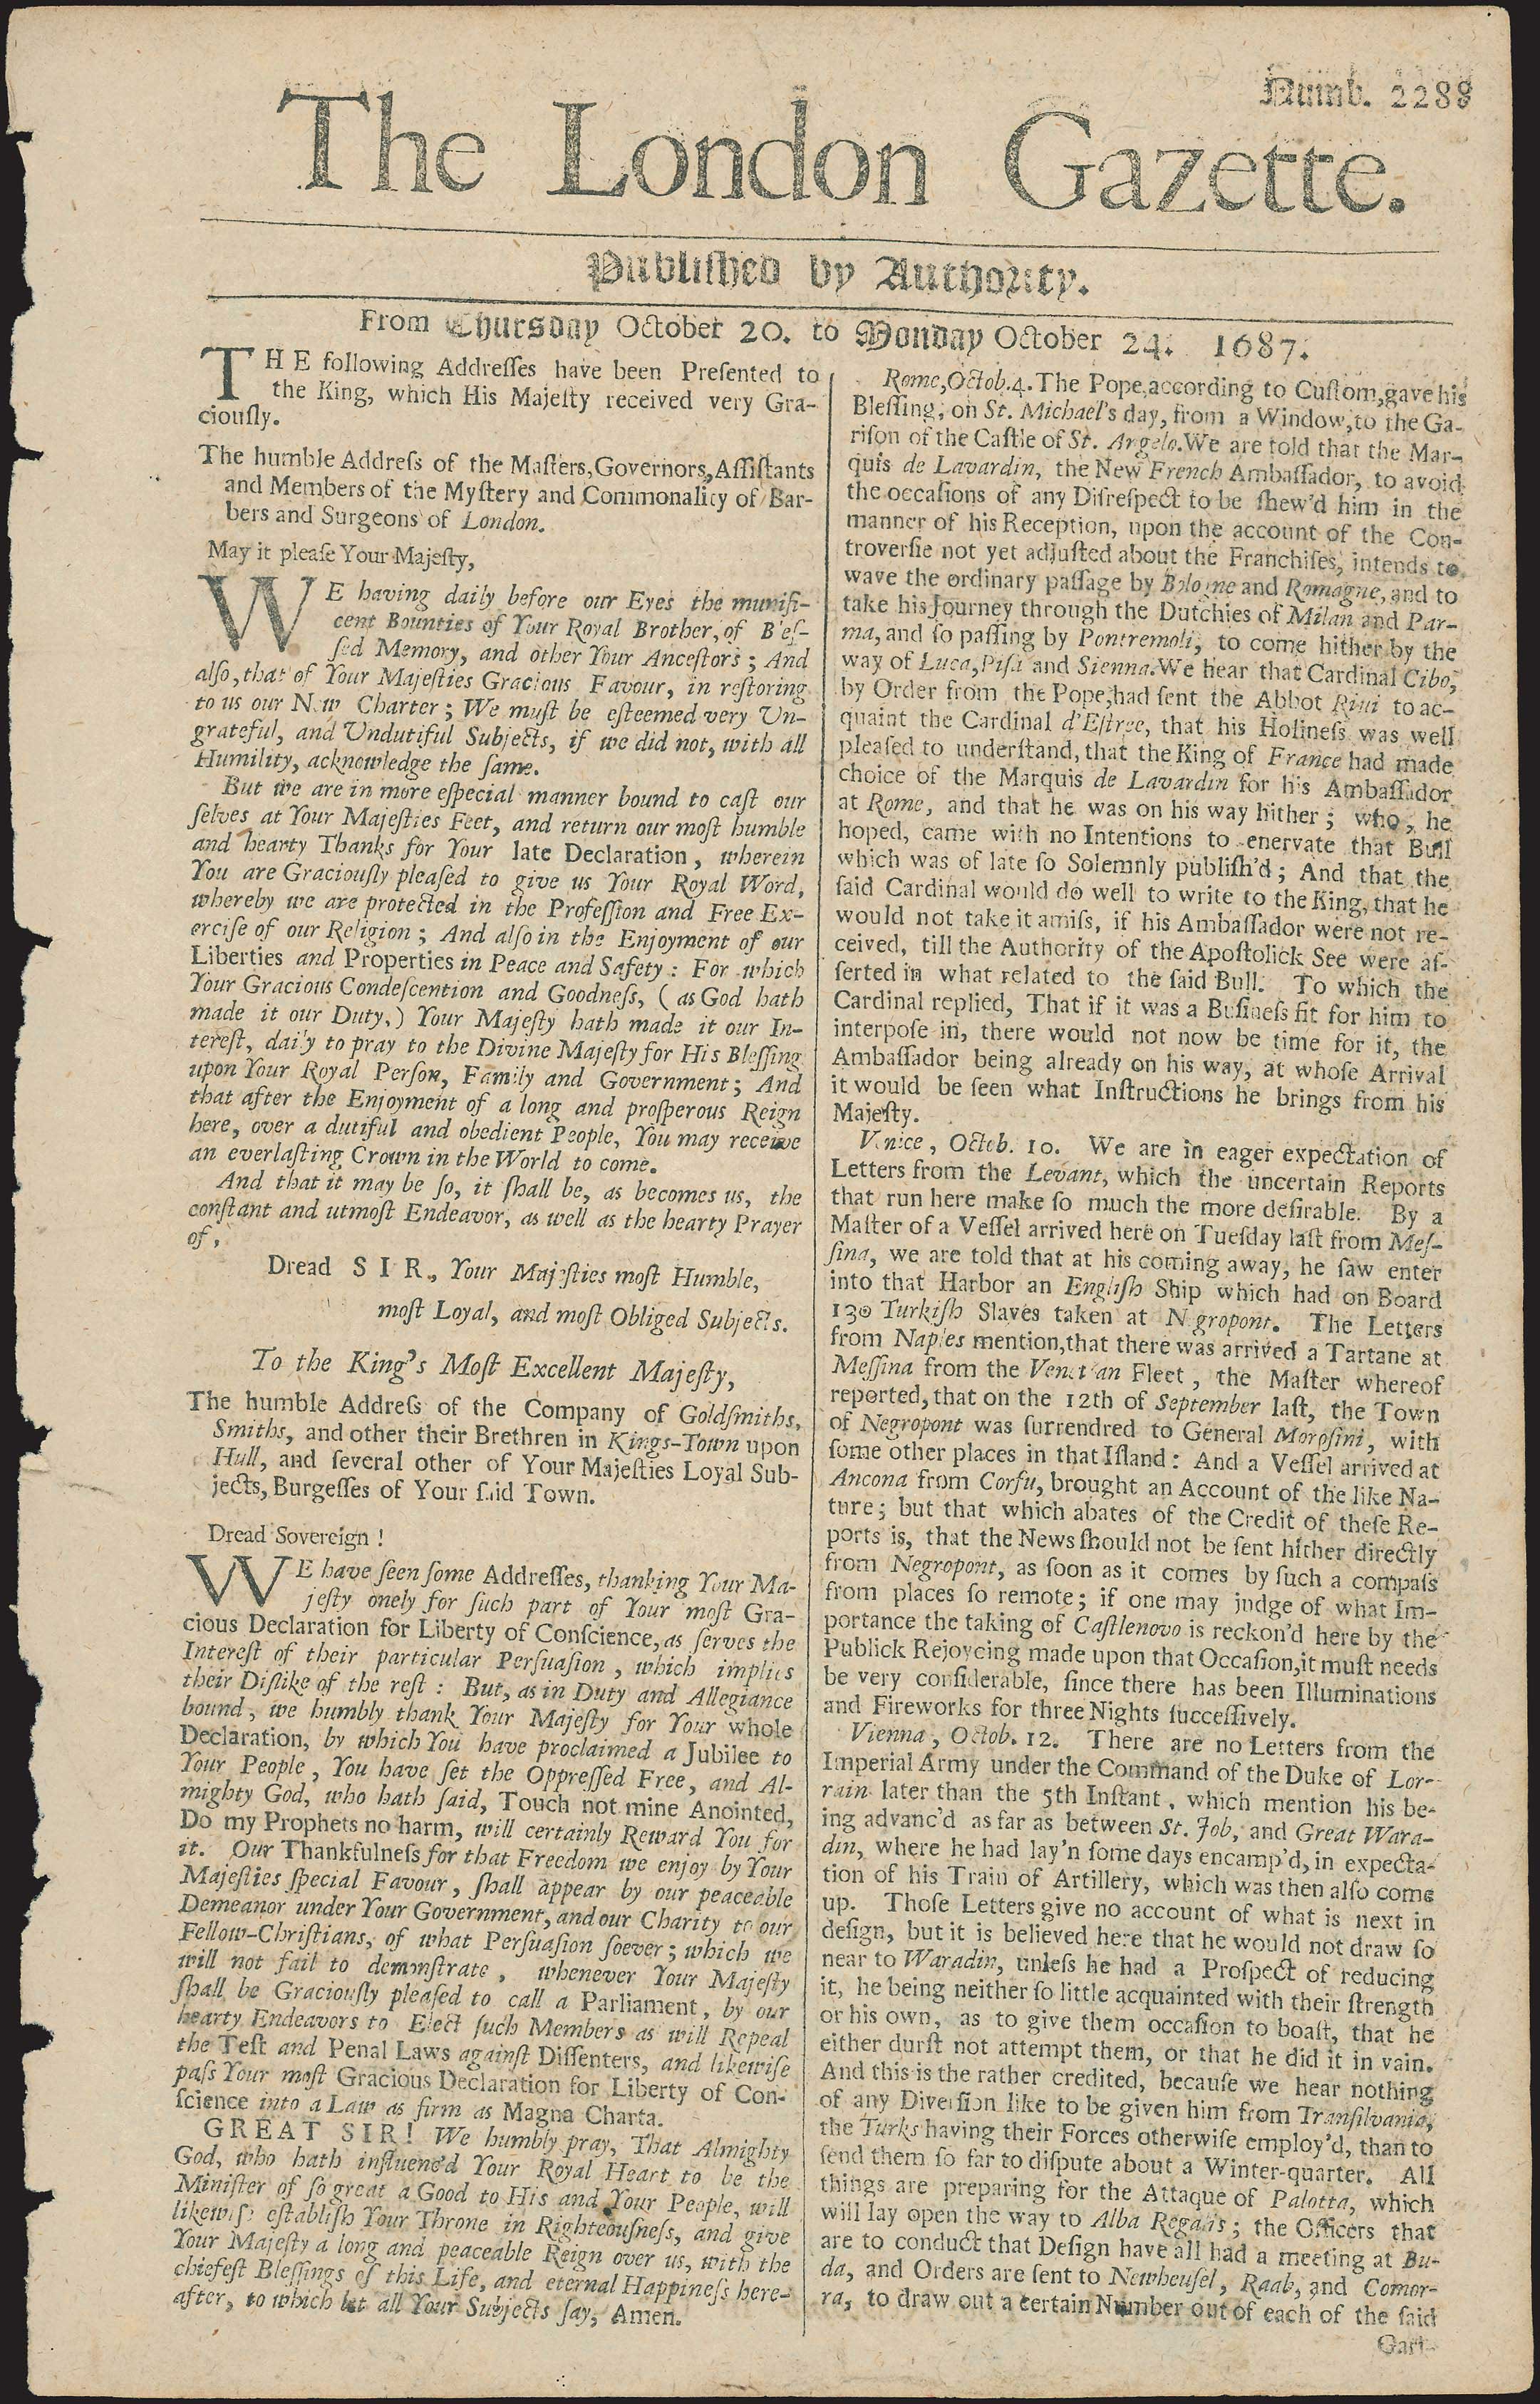 Numb. 2288
The London Gazette.
Publiſhed by Authority.
From Thursday October 20. to Monday October 24. 1687.
THE following Addreſſes have been Preſented to
the King, which His Majeſty received very Gra-
ciouſly.
The humble Addreſs of the Maſters, Governors, Aſſiſtants
and Members of the Myſtery and Commonality of Bar-
bers and Surgeons of London.
May it pleaſe Your Majeſty,
WE having daily before our Eyes the munifi-
cent Bounties of Your Royal Brother, of Bleſ-
ſed Memory, and other Your Anceſtors; And
alſo, that of Your Majeſties Gracious Favour, in reſtoring
to us our New Charter; We muſt be eſteemed very Un-
grateful, and Undutiful Subjects, if we did not, with all
Humility, acknowledge the ſame.
But we are in more eſpecial manner bound to caſt our
ſelves at Your Majeſties Feet, and return our moſt humble
and hearty Thanks for Your late Declaration, wherein
You are Graciouſly pleaſed to give us Your Royal Word,
whereby we are protected in the Profeſſion and Free Ex-
erciſe of our Religion; And alſo in the Enjoyment of our
Liberties and Properties in Peace and Safety: For which
Your Gracious Condeſcention and Goodneſs, (as God hath
made it our Duty,) Your Majeſty hath made it our In-
tereſt, daily to pray to the Divine Majeſty for His Bleſſing
upon Your Royal Perſon, Family and Government; And
that after the Enjoyment of a long and proſperous Reign
here, over a dutiful and obedient People, You may receive
an everlaſting Crown in the World to come.
And that it may be ſo, it ſhall be, as becomes us, the
conſtant and utmoſt Endeavor, as well as the hearty Prayer
of,
Dread SIR, Your Majeſties moſt Humble,
moſt Loyal, and moſt Obliged Subjects.
To the King's Moſt Excellent Majeſty,
The humble Addreſs of the Company of Goldſmiths,
Smiths, and other their Brethren in Kings-Town upon
Hull, and ſeveral other of Your Majeſties Loyal Sub-
jects, Burgeſſes of Your ſaid Town.
Dread Sovereign!
WE have ſeen ſome Addreſſes, thanking Your Ma-
jeſty onely for ſuch part of Your moſt Gra-
cious Declaration for Liberty of Conſcience, as ſerves the
Intereſt of their particular Perſuaſion, which implies
their Diſlike of the reſt: But, as in Duty and Allegiance
bound, we humbly thank Your Majeſty for Your whole
Declaration, by which You have proclaimed a Jubilee to
Your People, You have ſet the Oppreſſed Free, and Al-
mighty God, who hath ſaid, Touch not mine Anointed,
Do my Prophets no harm, will certainly Reward You for
it. Our Thankfulneſs for that Freedom we enjoy by Your
Majeſties ſpecial Favour, ſhall appear by our peaceable
Demeanor under Your Government, and our Charity to our
Fellow-Chriſtians, of what Perſuaſion ſoever; which we
will not fail to demonſtrate, whenever Your Majeſty
ſhall be Graciouſly pleaſed to call a Parliament, by our
hearty Endeavors to Elect ſuch Members as will Repeal
the Teſt and Penal Laws againſt Diſſenters, and likewiſe
paſs Your moſt Gracious Declaration for Liberty of Con-
ſcience into a Law as firm as Magna Charta.
GREAT SIR! We humbly pray, That Almighty
God, who hath influenc'd Your Royal Heart to be the
Miniſter of ſo great a Good to His and Your People, will
likewiſe eſtabliſh Your Throne in Righteouſneſs, and give
Your Majeſty a long and peaceable Reign over us, with the
chiefeſt Bleſſings of this Life, and eternal Happineſs here-
after, to which let all Your Subjects ſay, Amen.
Rome, Octob. 4. The Pope, according to Cuſtom, gave his
Bleſſing, on St. Michael's day, from a Window, to the Ga-
riſon of the Caſtle of St. Argelo. We are told that the Mar-
quis de Lavardin, the New French Ambaſſador, to avoid
the occaſions of any Diſreſpect to be ſhew'd him in the
manner of his Reception, upon the account of the Con-
troverſie not yet adjuſted about the Franchiſes, intends to
wave the ordinary paſſage by Bologne and Romagne, and to
take his Journey through the Dutchies of Milan and Par-
ma, and ſo paſſing by Pontremoli, to come hither by the
way of Luca, Piſa and Sienna. We hear that Cardinal Cibo,
by Order from the Pope, had ſent the Abbot Rini to ac-
quaint the Cardinal d'Eſtree, that his Holineſs was well
pleaſed to underſtand, that the King of France had made
choice of the Marquis de Lavardin for his Ambaſſador
at Rome, and that he was on his way hither; who, he
hoped, came with no Intentions to enervate that Bull
which was of late ſo Solemnly publiſh'd; And that the
ſaid Cardinal would do well to write to the King, that he
would not take it amiſs, if his Ambaſſador were not re-
ceived, till the Authority of the Apoſtolick See were aſ-
ſerted in what related to the ſaid Bull. To which the
Cardinal replied, That if it was a Buſineſs fit for him to
interpoſe in, there would not now be time for it, the
Ambaſſador being already on his way, at whoſe Arrival
it would be ſeen what Inſtructions he brings from his
Majeſty.
Venice, Octob. 10. We are in eager expectation of
Letters from the Levant, which the uncertain Reports
that run here make ſo much the more deſirable. By a
Maſter of a Veſſel arrived here on Tueſday laſt from Meſ-
ſina, we are told that at his coming away, he ſaw enter
into that Harbor an Engliſh Ship which had on Board
130 Turkiſh Slaves taken at Negropont. The Letters
from Naples mention, that there was arrived a Tartane at
Meſſina from the Venetian Fleet, the Maſter whereof
reported, that on the 12th of September laſt, the Town
of Negropont was ſurrendred to General Moroſini, with
ſome other places in that Iſland: And a Veſſel arrived at
Ancona from Corfu, brought an Account of the like Na-
ture; but that which abates of the Credit of theſe Re-
ports is, that the News ſhould not be ſent hither directly
from Negropont, as ſoon as it comes by ſuch a compaſs
from places ſo remote; if one may judge of what Im-
portance the taking of Caſtlenovo is reckon'd here by the
Publick Rejoycing made upon that Occaſion, it muſt needs
be very conſiderable, ſince there has been Illuminations
and Fireworks for three Nights ſucceſſively.
Vienna, Octob. 12. There are no Letters from the
Imperial Army under the Command of the Duke of Lor-
rain later than the 5th Inſtant, which mention his be-
ing advanc'd as far as between St. Job, and Great Wara-
din, where he had lay'n ſome days encamp'd, in expecta-
tion of his Train of Artillery, which was then alſo come
up. Thoſe Letters give no account of what is next in
deſign, but it is believed here that he would not draw ſo
near to Waradin, unleſs he had a Proſpect of reducing
it, he being neither ſo little acquainted with their ſtrength
or his own, as to give them occaſion to boaſt, that he
either durſt not attempt them, or that he did it in vain.
And this is the rather credited, becauſe we hear nothing
of any Diverſion like to be given him from Tranſilvania,
the Turks having their Forces otherwiſe employ'd, than to
ſend them ſo far to diſpute about a Winter-quarter. All
things are preparing for the Attaque of Palotta, which
will lay open the way to Alba Regalis; the Officers that
are to conduct that Deſign have all had a meeting at Bu-
da, and Orders are ſent to Newheuſel, Raab, and Comor-
ra, to draw out a certain Number out of each of the ſaid
Gari-